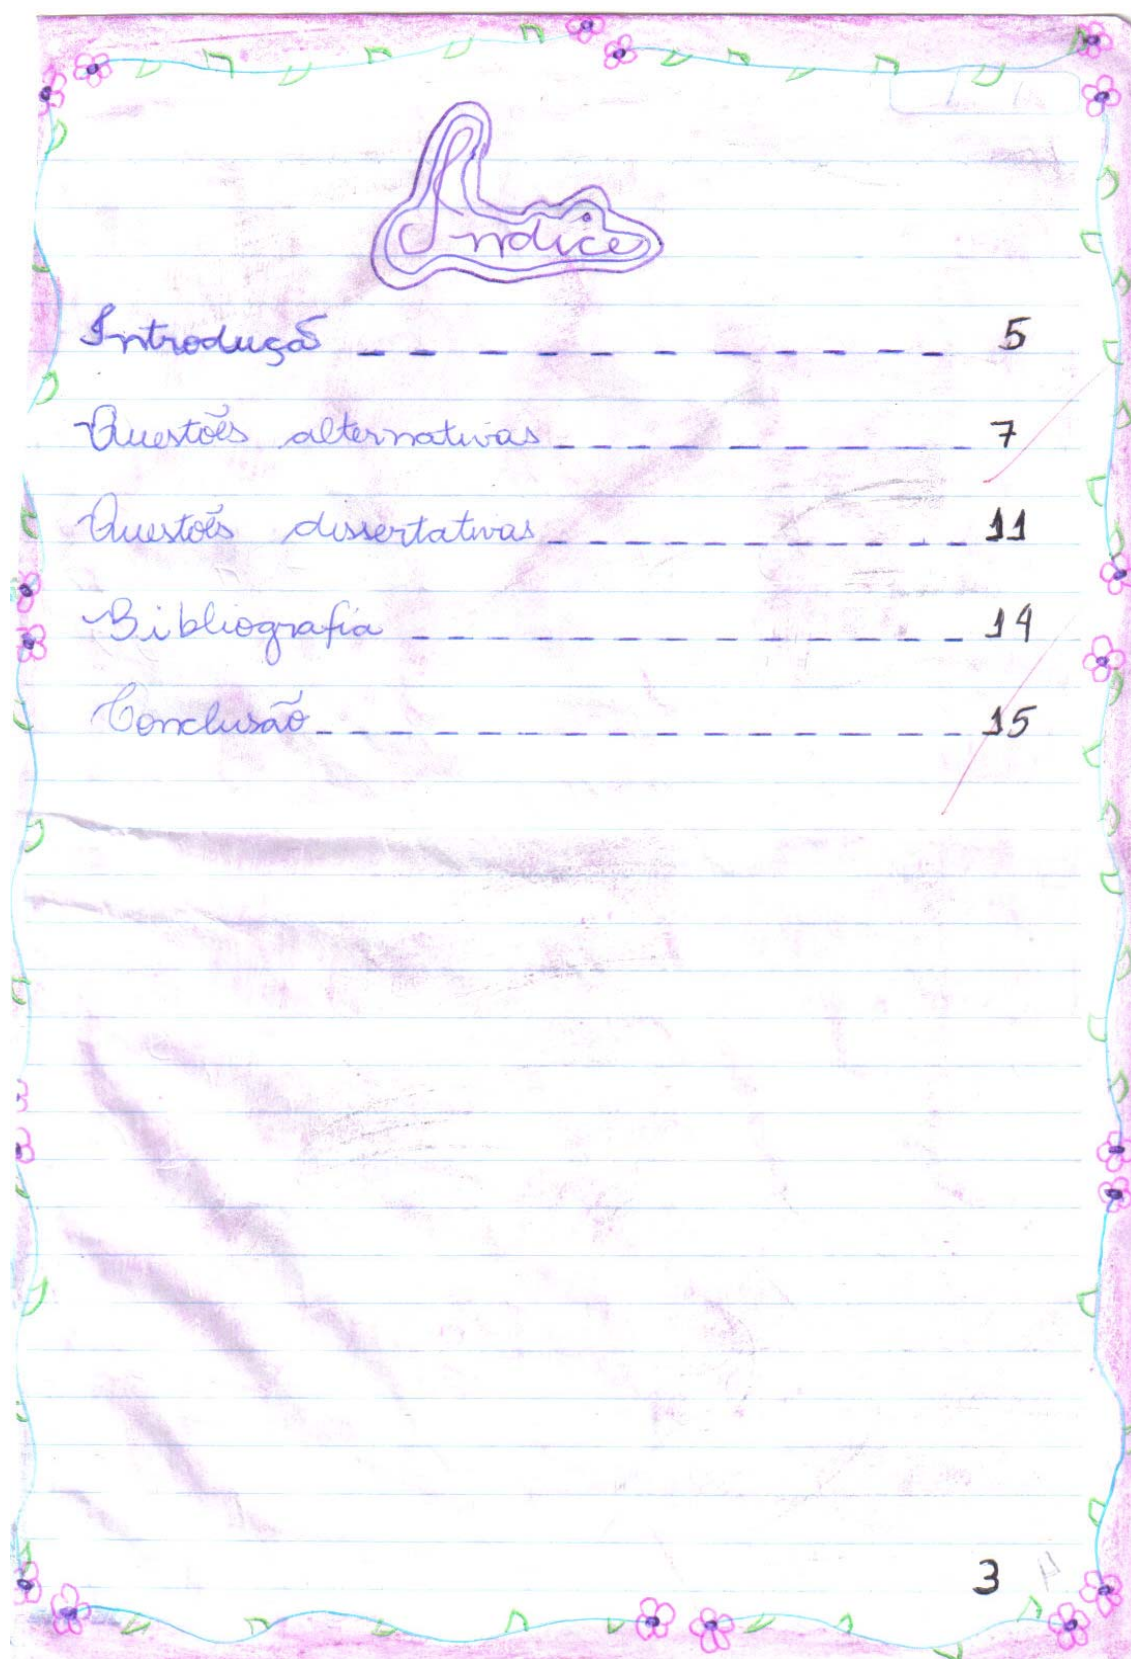 Indice
Introdução _ _ _ _ _ _ _ _ _ _ _ _ _ 5
Questões alternativas _ _ _ _ _ _ _ _ _ _ _ 7
Questões dissertativas _ _ _ _ _ _ _ _ _ _ _ 11
Bibliografia _ _ _ _ _ _ _ _ _ _ _ _ _ _ 14
Conclusão _ _ _ _ _ _ _ _ _ _ _ _ _ _ _ _ 15
3